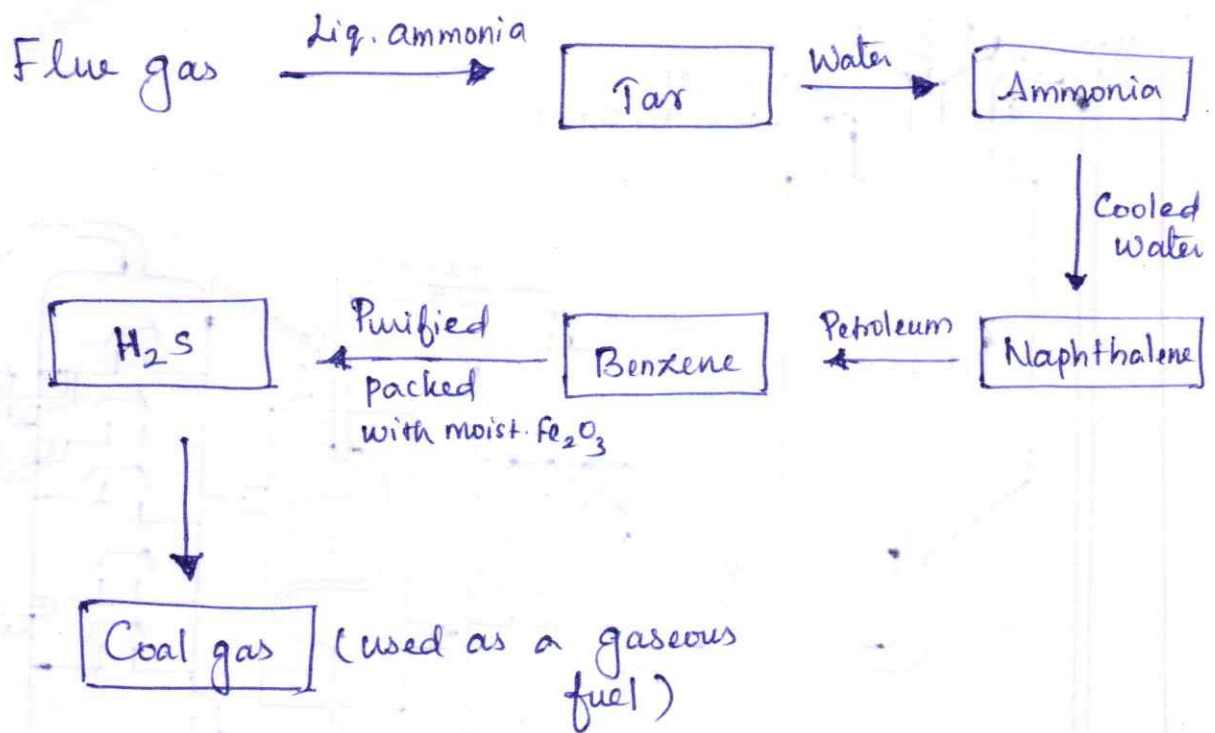 Flue gas
Liq. ammonia
Tar
Water
Ammonia
Cooled
water
Naphthalene
Petroleum
Benzene
Purified
packed
with moist. Fe₂O₃
H₂S
Coal gas
(used as a gaseous
fuel)